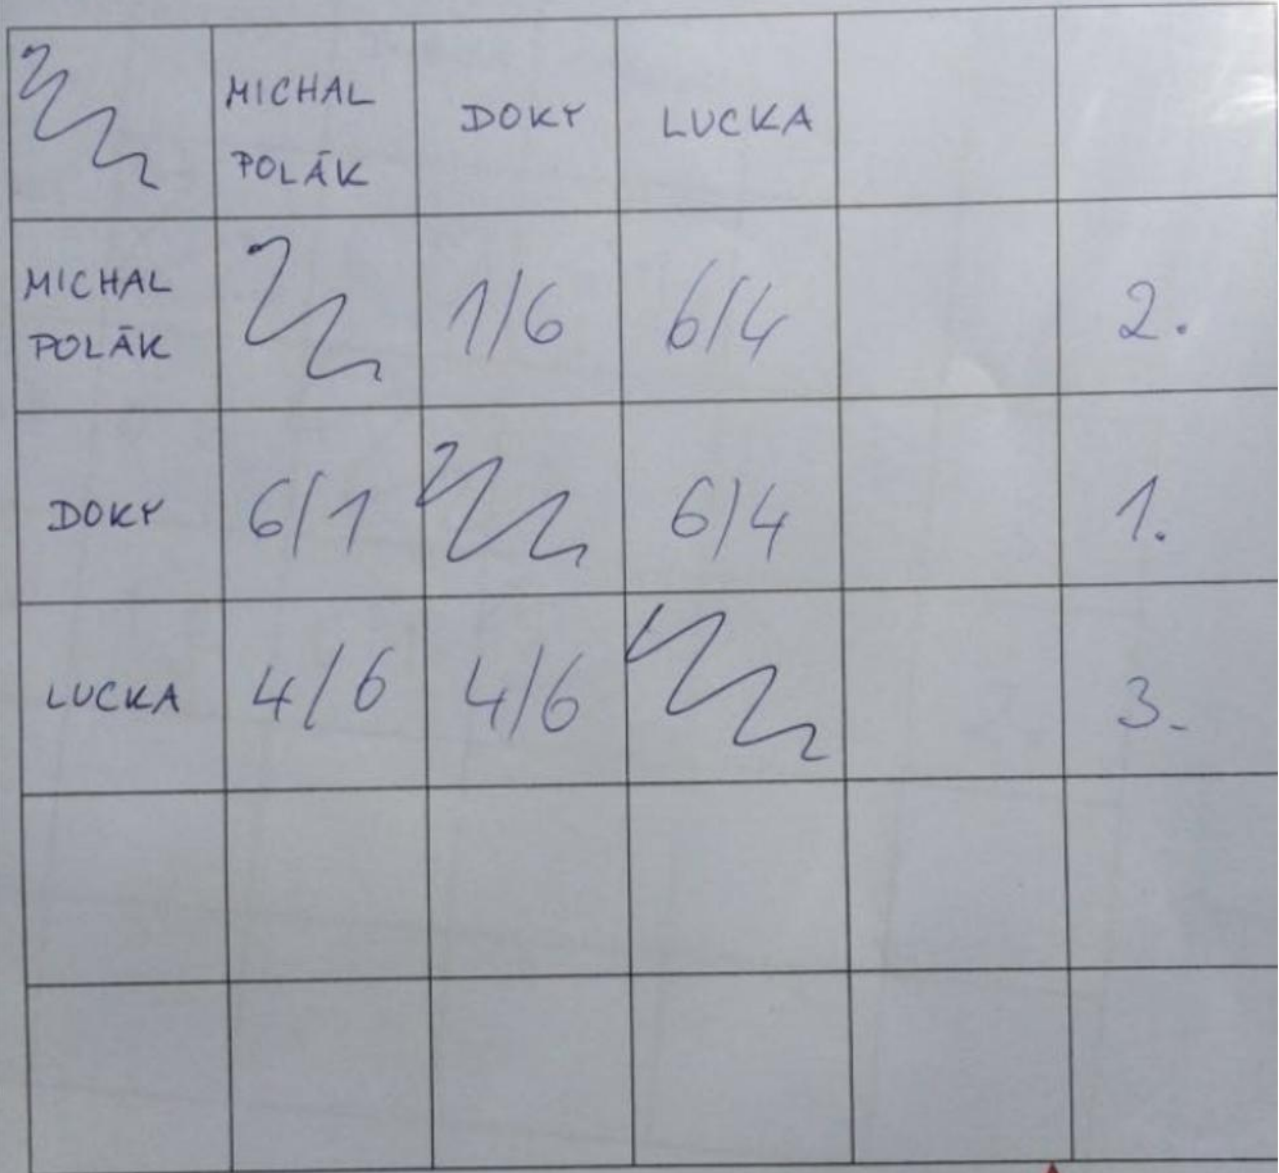 MICHAL POLÁK DOKY LUCKA
MICHAL POLÁK 1/6 6/4 2.
DOKY 6/1 6/4 1.
LUCKA 4/6 4/6 3.